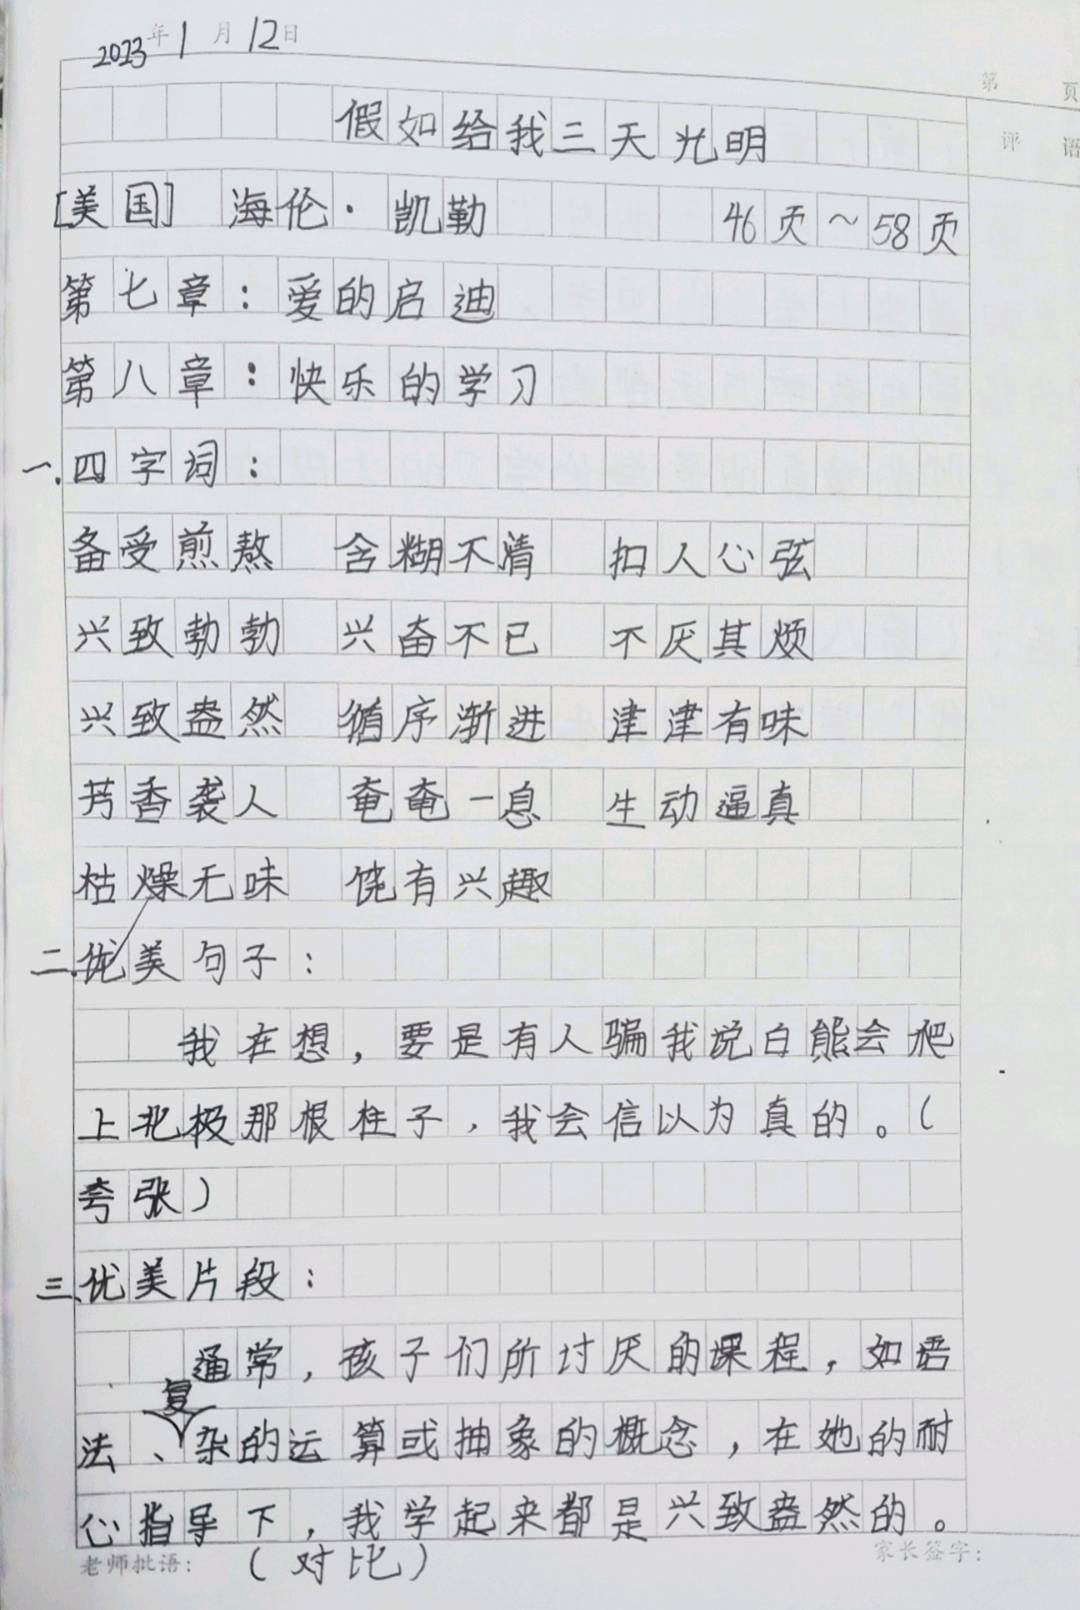 2023年1月12日
第 页
假如给我三天光明
评语
[美国] 海伦·凯勒 46页~58页
第七章：爱的启迪
第八章：快乐的学习
一.四字词：
备受煎熬 含糊不清 扣人心弦
兴致勃勃 兴奋不已 不厌其烦
兴致盎然 循序渐进 津津有味
芳香袭人 奄奄一息 生动逼真
枯燥无味 饶有兴趣
二.优美句子：
我在想，要是有人骗我说白熊会爬
上北极那根柱子，我会信以为真的。（
夸张）
三.优美片段：
通常，孩子们所讨厌的课程，如语
法、复杂的运算或抽象的概念，在她的耐
心指导下，我学起来都是兴致盎然的。
老师批语： （对比） 家长签字：